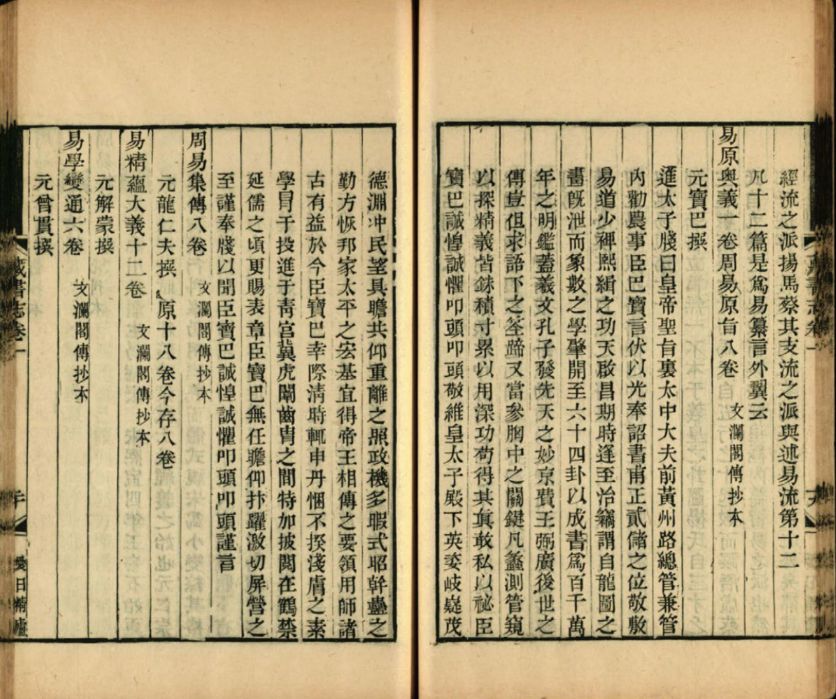 經流之派揚馬蔡其支流之派與述易流第十二
凡十二篇是爲易纂言外翼云
易原奧義一卷周易原旨八卷　文瀾閣傳抄本
元寶巴撰
進太子牋曰皇帝聖旨裏太中大夫前黃州路總管兼管
內勸農事臣巴寶言伏以光奉詔書甫正貳儲之位敬敷
易道少裨熙緝之功天啟昌期時逢至治竊謂自龍圖之
畫旣泄而象數之學肇開至六十四卦以成書爲百千萬
年之明鑑蓋羲文孔子發先天之妙京費王弼廣後世之
傳豈但求語下之筌蹄又當參胸中之關鍵凡蠡測管窺
以探精義皆銖積寸累以用深功茍得其眞敢私以祕臣
寶巴誠惶誠懼叩頭叩頭敬維皇太子殿下英姿岐嶷茂
德淵冲民望具瞻共仰重離之照政機多暇式昭幹蠱之
勤方恢邦家太平之宏基宜得帝王相傳之要領用師諸
古有益於今臣寶巴幸際淸時輒申丹悃不揆淺膚之素
學冒干投進于靑宮冀虎闈齒胄之間特加披閱在鶴禁
延儒之頃更賜表章臣寶巴無任瞻仰抃躍激切屏營之
至謹奉牋以聞臣寶巴誠惶誠懼叩頭叩頭謹言
周易集傳八卷　文瀾閣傳抄本
元龍仁夫撰　原十八卷今存八卷
易精蘊大義十二卷　文瀾閣傳抄本
元解蒙撰
易學變通六卷　文瀾閣傳抄本
元曾貫撰
藏書志卷一
愛日精廬